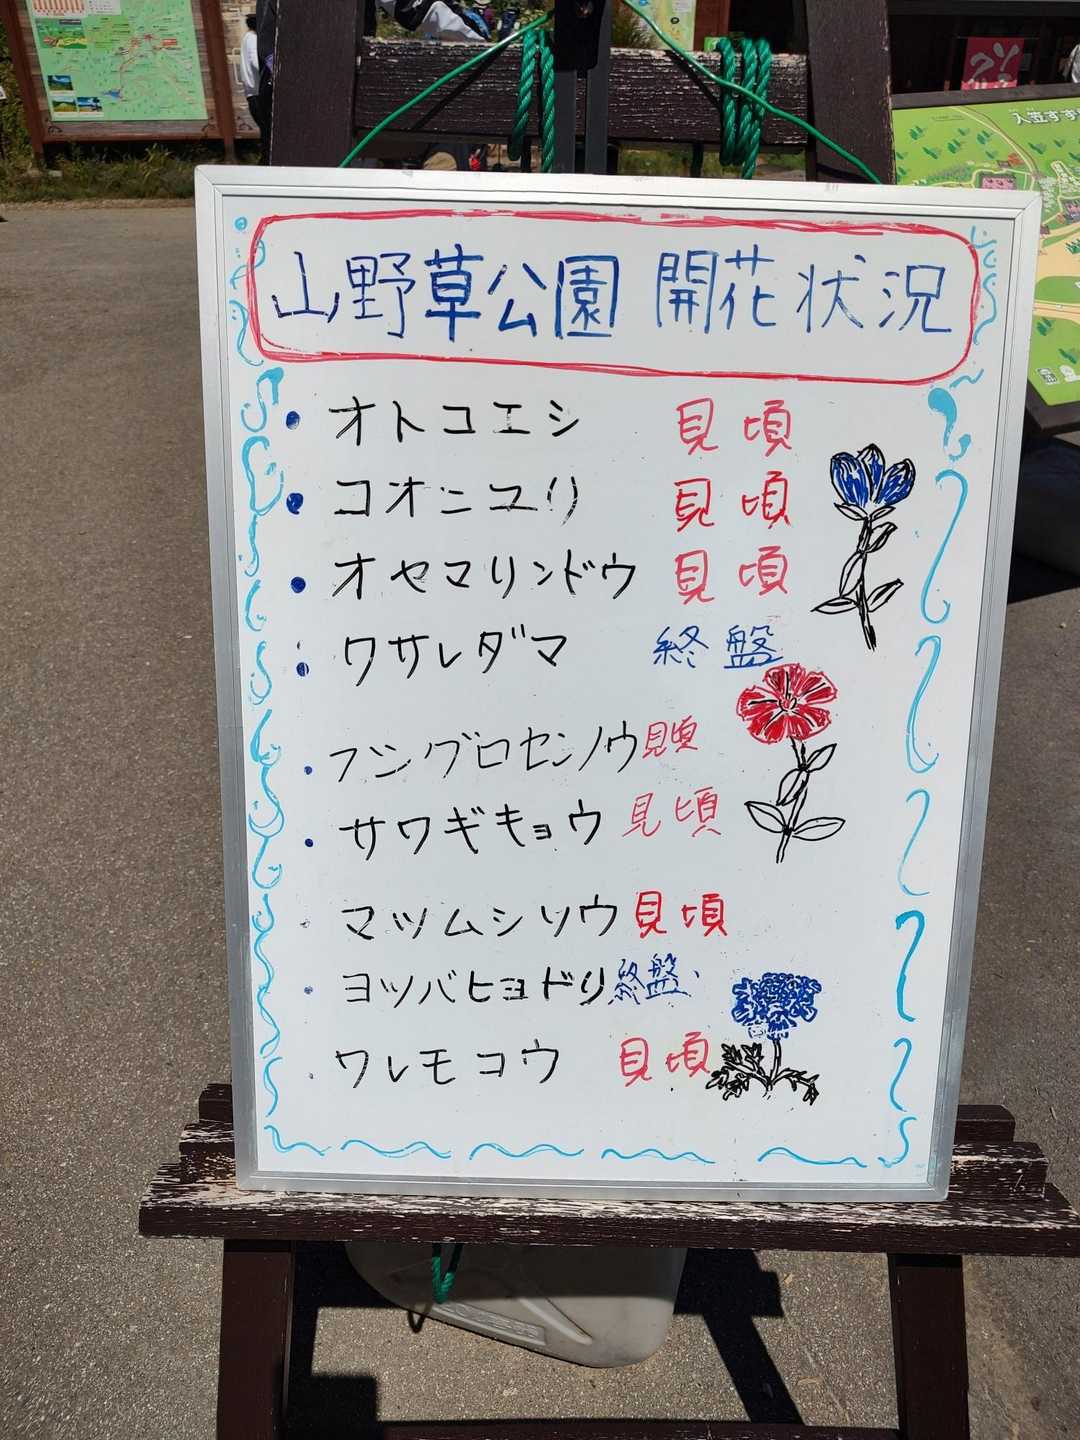 入笠すず
山野草公園 開花状況
・オトコエシ 見頃
・コオニユリ 見頃
・オヤマリンドウ 見頃
・クサレダマ 終盤
・フシグロセンノウ 見頃
・サワギキョウ 見頃
マツムシソウ 見頃
・ヨツバヒヨドリ 終盤
・ワレモコウ 見頃